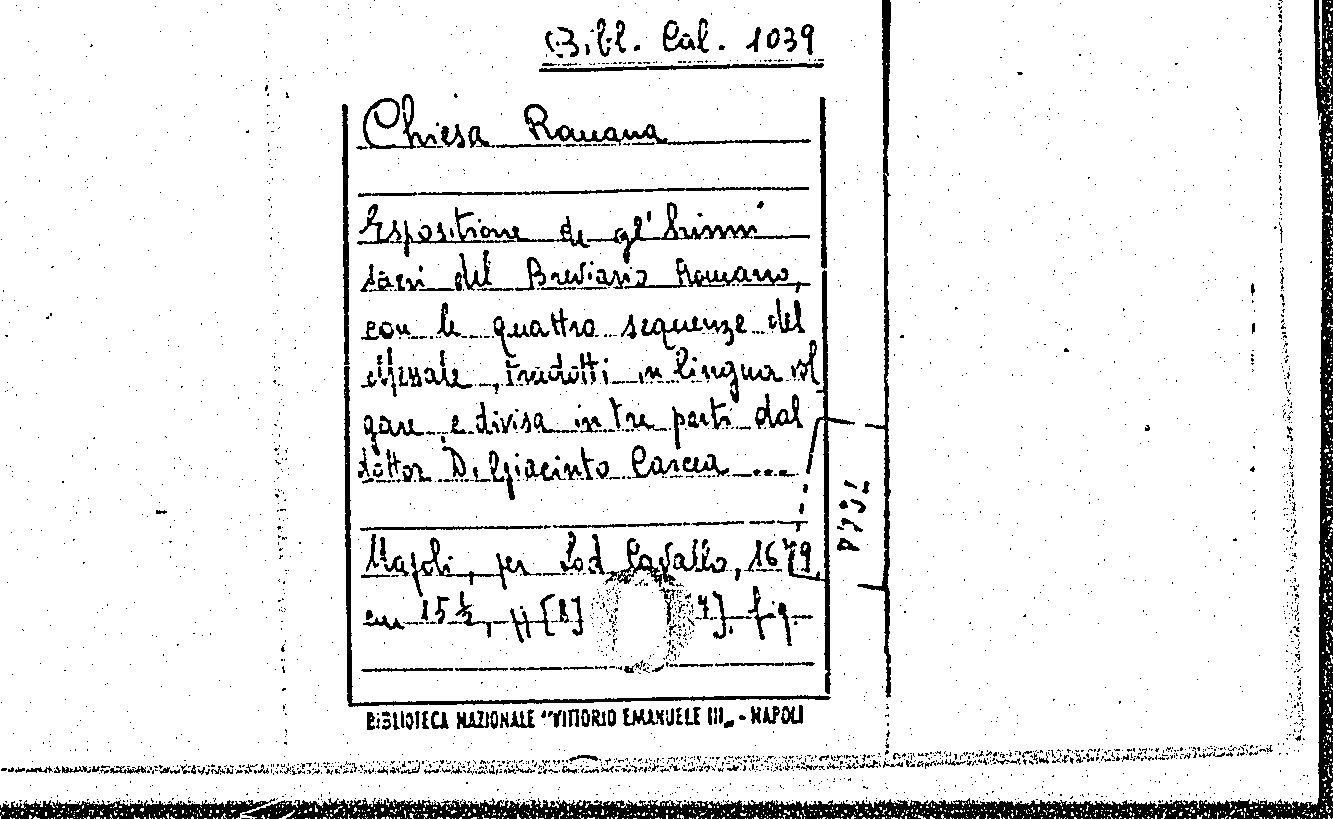 Bibl. Cal. 1039
Chiesa Romana
Espositione de gl' Hinni
sacri del Breviario Romano,
con le quattro sequenze del
Messale, tradotti in lingua vol
gare, e divisa in tre parti dal
dottor D. Giacinto Carcea ...
Napoli, per Lod. Cavallo, 1679
cm 15 ½, pp [8] 7]. fig.
BIBLIOTECA NAZIONALE "VITTORIO EMANUELE III„ - NAPOLI